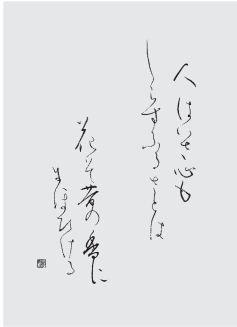 人はいさ心も
しらずふるさとは
花そ昔の香に
にほひける